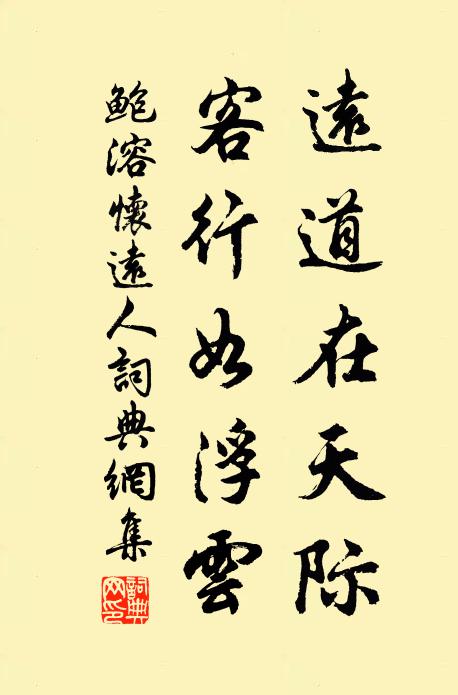 遠道在天际
客行如浮雲
鲍溶懷遠人詞典網集
詞典網印